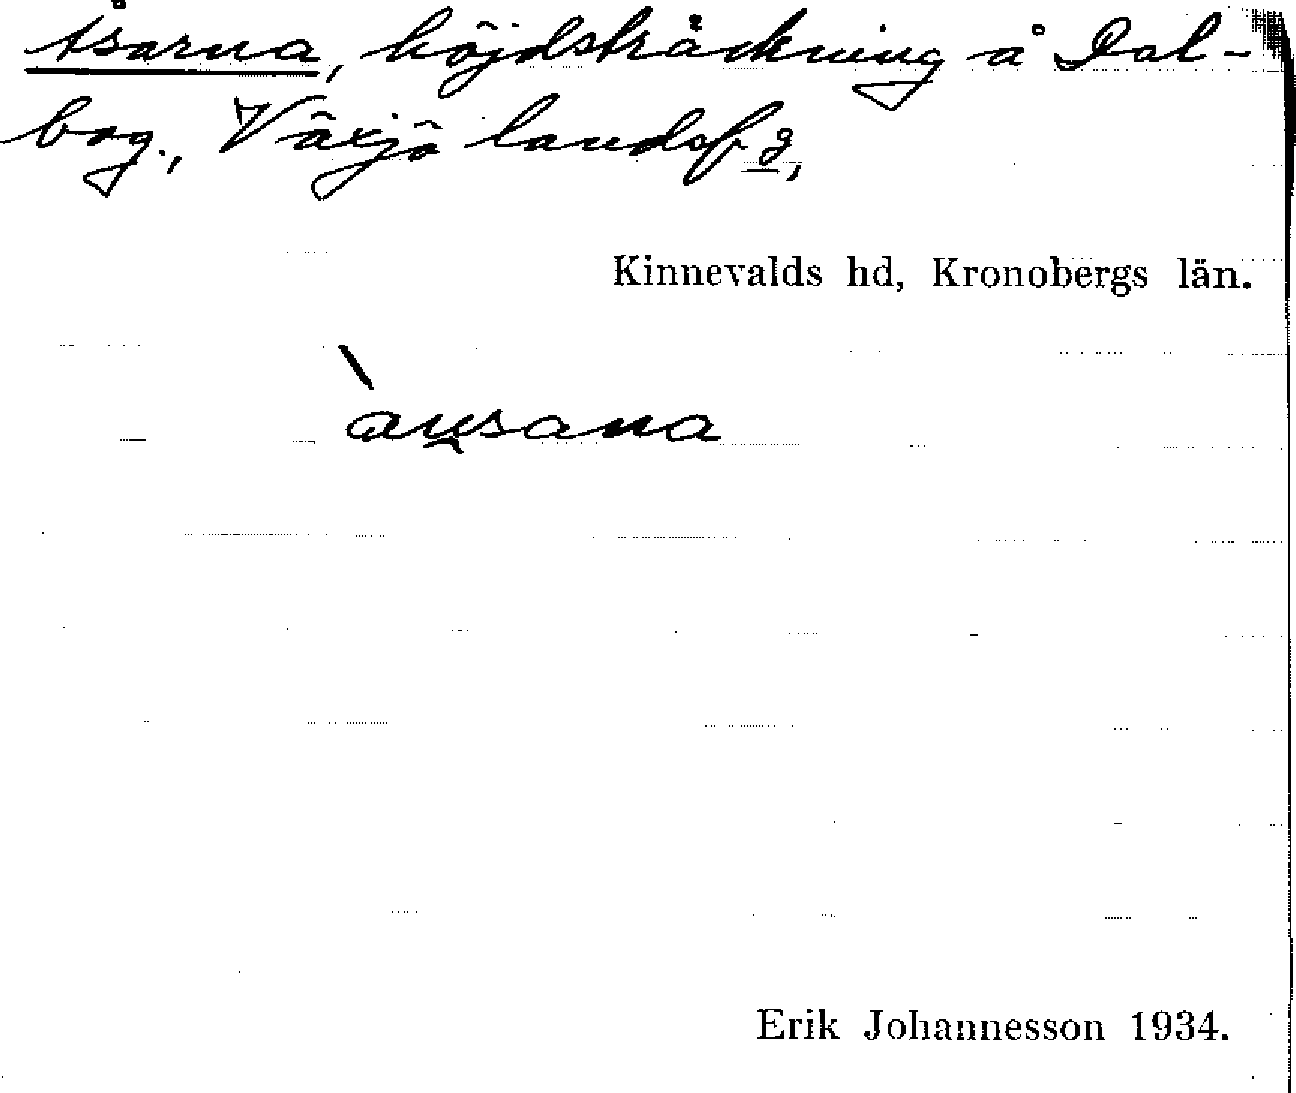 Åsarna, höjdsträckning å Dal-
bog., Växjö landsf. g,
Kinnevalds hd, Kronobergs län.
Erik Johannesson 1934.